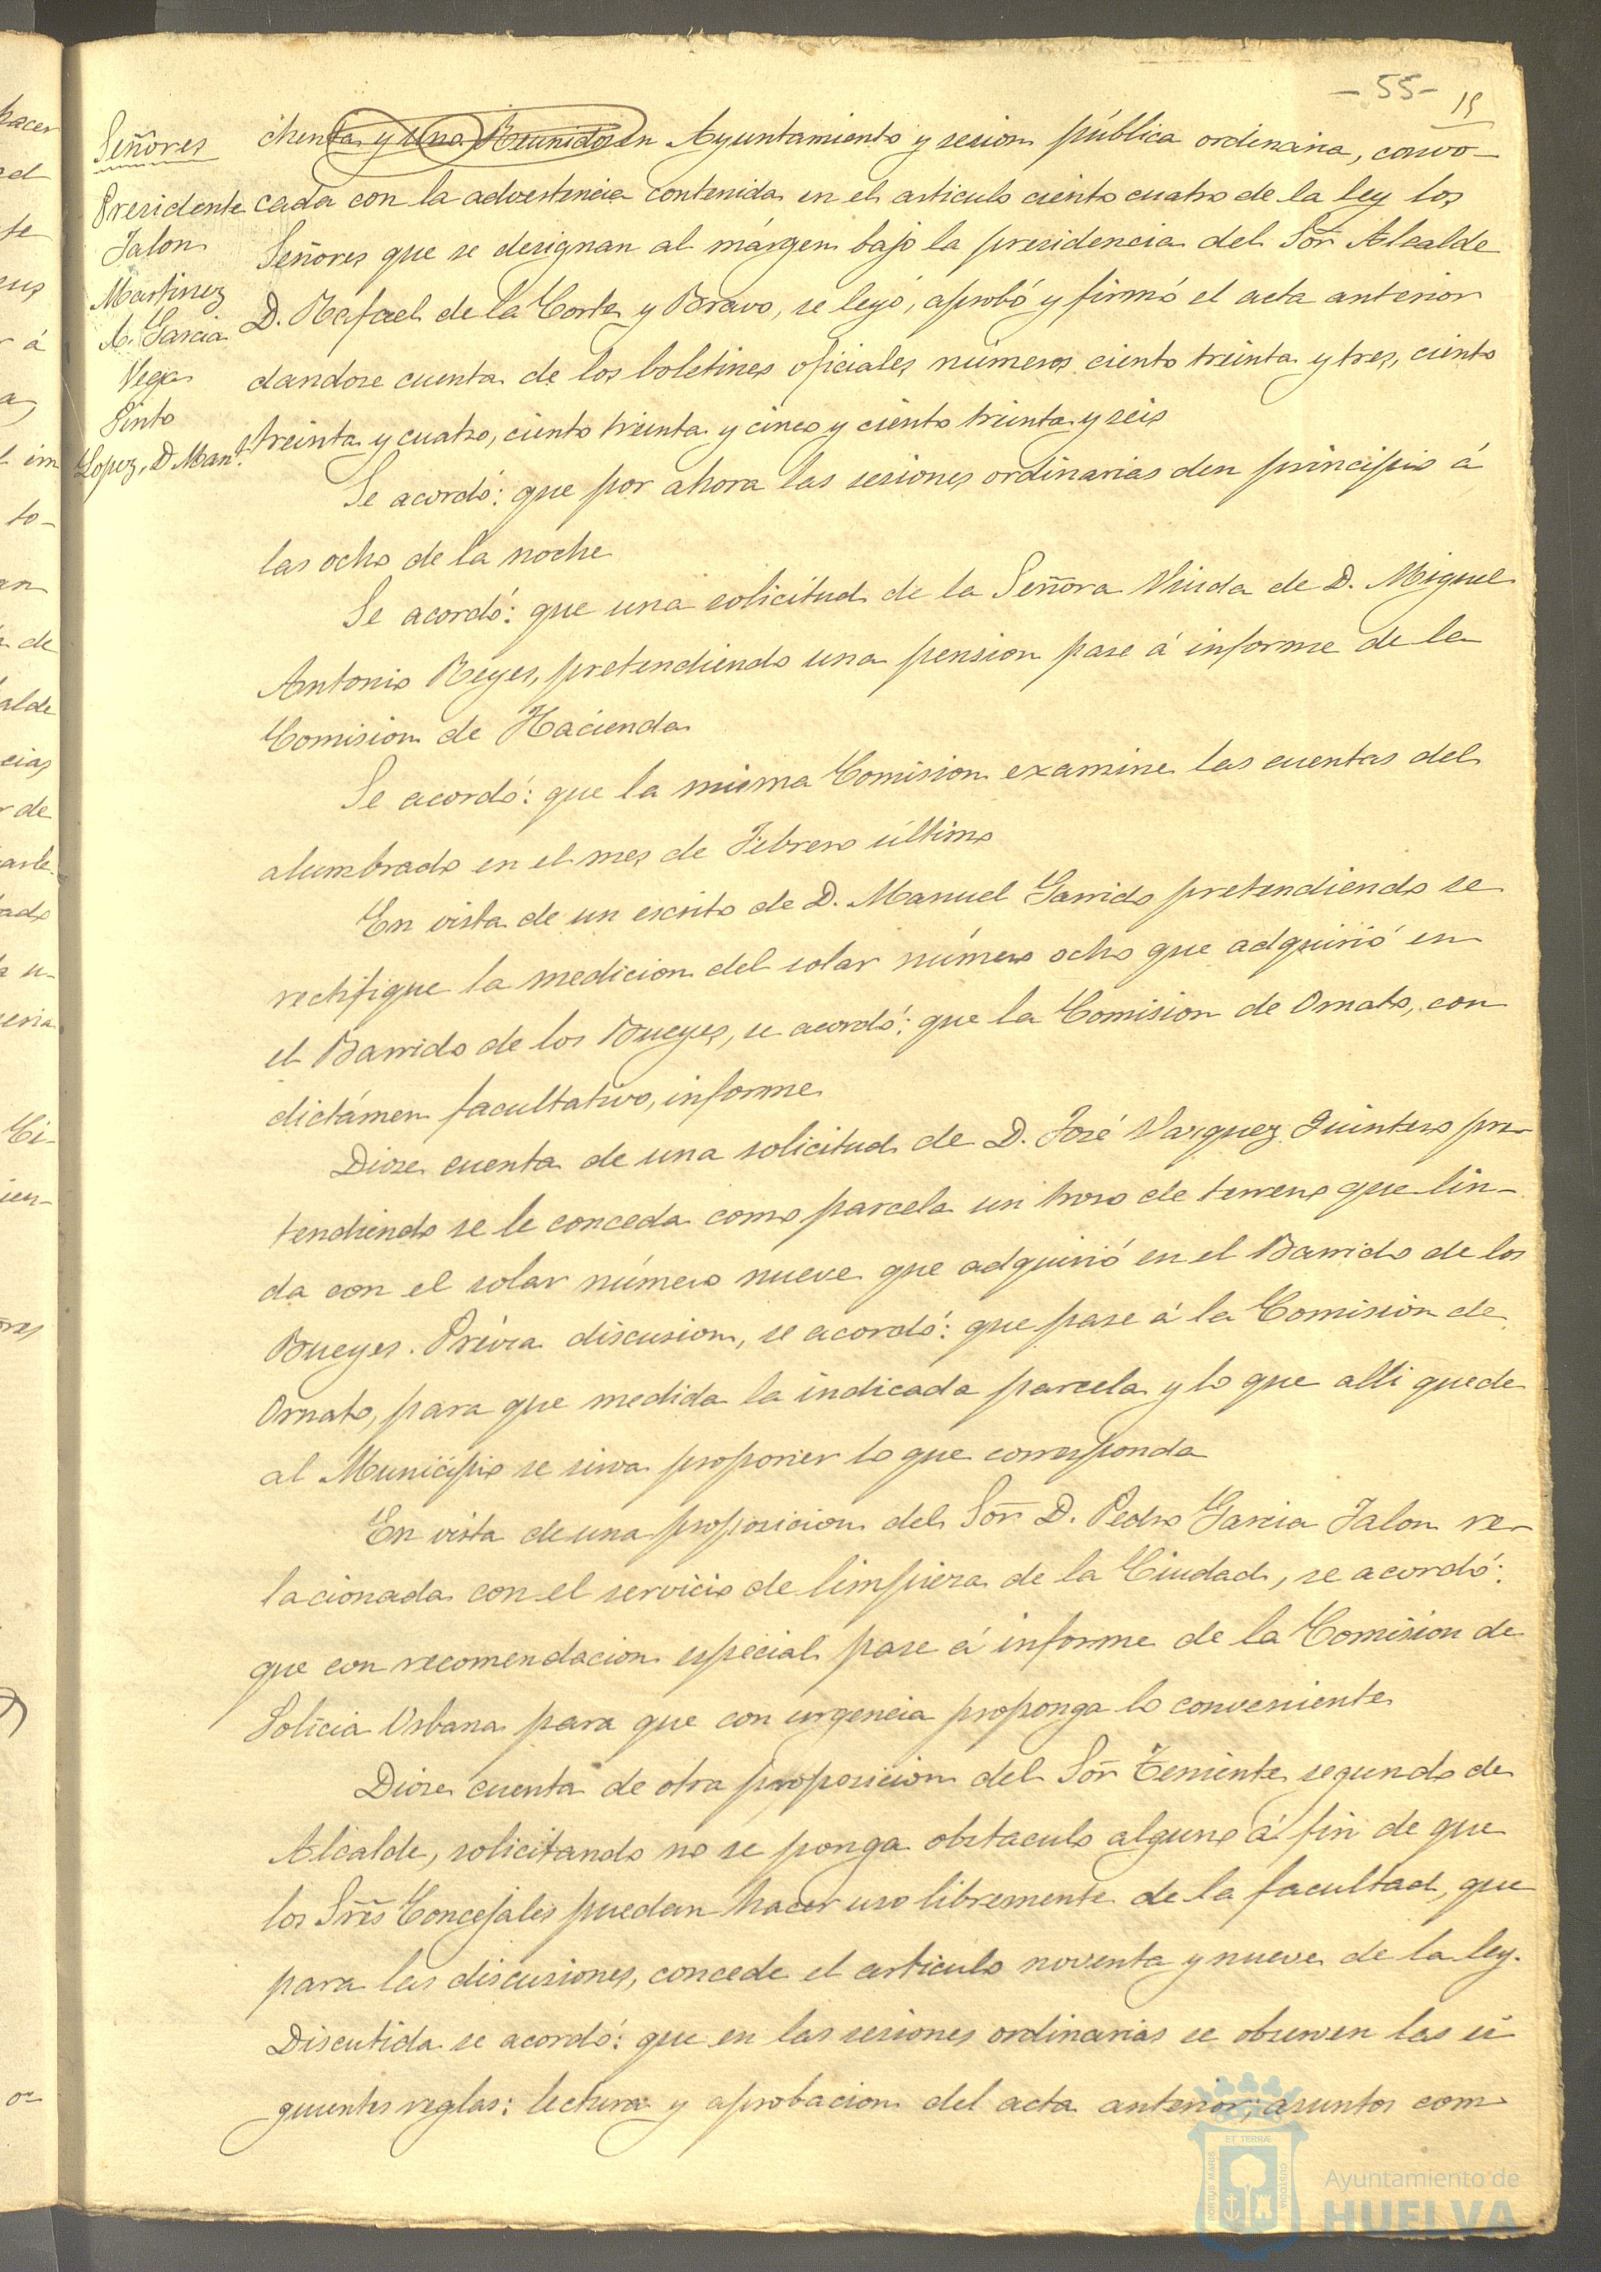 - 55 -
19
Señores
Presidente
Jalon
Martinez
A. Garcia
Vega
Pinto
Lopez, D. Manl.
chenta y una Reunidos en Ayuntamiento y sesion pública ordinaria, convo-
cada con la advertencia contenida en el articulo ciento cuatro de la ley los
Señores que se designan al márgen bajo la presidencia del Sor. Alcalde
D. Rafael de la Corte y Bravo, se leyó, aprobó y firmó el acta anterior
dandose cuenta de los boletines oficiales números ciento treinta y tres, ciento
treinta y cuatro, ciento treinta y cinco y ciento treinta y seis
Se acordó: que por ahora las sesiones ordinarias den principio á
las ocho de la noche
Se acordó: que una solicitud de la Señora Viuda de D. Miguel
Antonio Reyes, pretendiendo una pension pase á informe de la
Comision de Hacienda
Se acordó: que la misma Comision examine las cuentas del
alumbrado en el mes de Febrero último
En vista de un escrito de D. Manuel Garrido pretendiendo se
rectifique la medicion del solar número ocho que adquirió en
el Barrido de los Bueyes, se acordó: que la Comision de Ornato, con
dictámen facultativo, informe
Diose cuenta de una solicitud de D. José Vazquez Quintero pre-
tendiendo se le conceda como parcela un trozo de terreno que lin-
da con el solar número nueve que adquirió en el Barrido de los
Bueyes. Prévia discusion, se acordó: que pase á la Comision de
Ornato, para que medida la indicada parcela y lo que alli quede
al Municipio se sirva proponer lo que corresponda
En vista de una proposicion del Sor. D. Pedro Garcia Jalon re-
lacionada con el servicio de limpieza de la Ciudad, se acordó:
que con recomendacion especial pase á informe de la Comision de
Policia Urbana para que con urgencia proponga lo conveniente
Diose cuenta de otra proposicion del Sor. Teniente segundo de
Alcalde, solicitando no se ponga obstaculo alguno á fin de que
los Sres. Concejales puedan hacer uso libremente de la facultad, que
para las discusiones, concede el articulo noventa y nueve de la ley.
Discutida se acordó: que en las sesiones ordinarias se observen las si
guientes reglas: lectura y aprobacion del acta anterior; asuntos com
PORTUS MARIS
ET TERRÆ
CUSTODIA
Ayuntamiento de
HUELVA
hacer
te
r á
to-
an
de
alde
cias
r de
ado
Ci-
ien-